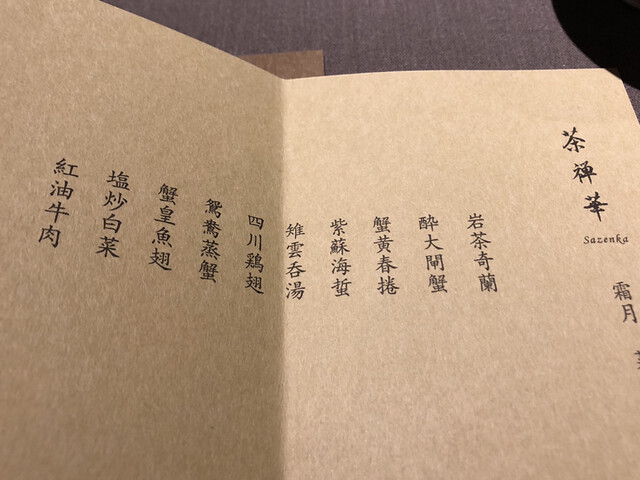 茶禅華
Sazenka
霜月
岩茶奇蘭
酔大閘蟹
蟹黄春捲
紫蘇海蜇
雉雲呑湯
四川鶏翅
鴛鴦蒸蟹
蟹皇魚翅
塩炒白菜
紅油牛肉